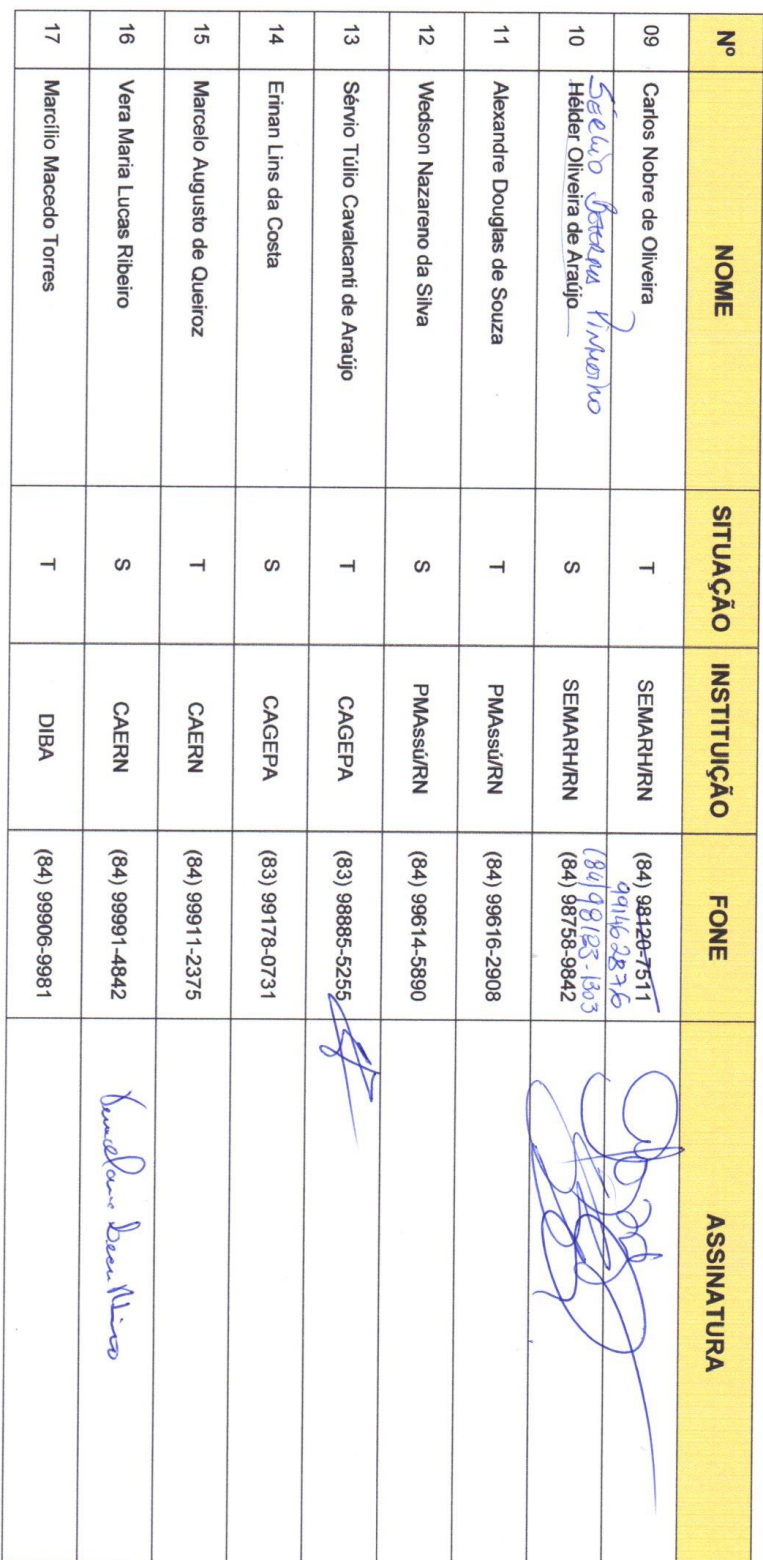 Nº NOME SITUAÇÃO INSTITUIÇÃO FONE ASSINATURA
09 Carlos Nobre de Oliveira T SEMARH/RN (84) 98120-7511
991462876
Pinheiro (84) 98123-1303
10 Hélder Oliveira de Araújo S SEMARH/RN (84) 98758-9842
11 Alexandre Douglas de Souza T PMAssú/RN (84) 99616-2908
12 Wedson Nazareno da Silva S PMAssú/RN (84) 99614-5890
13 Sérvio Túlio Cavalcanti de Araújo T CAGEPA (83) 98885-5255
14 Erinan Lins da Costa S CAGEPA (83) 99178-0731
15 Marcelo Augusto de Queiroz T CAERN (84) 99911-2375
16 Vera Maria Lucas Ribeiro S CAERN (84) 99991-4842
17 Marcílio Macedo Torres T DIBA (84) 99906-9981